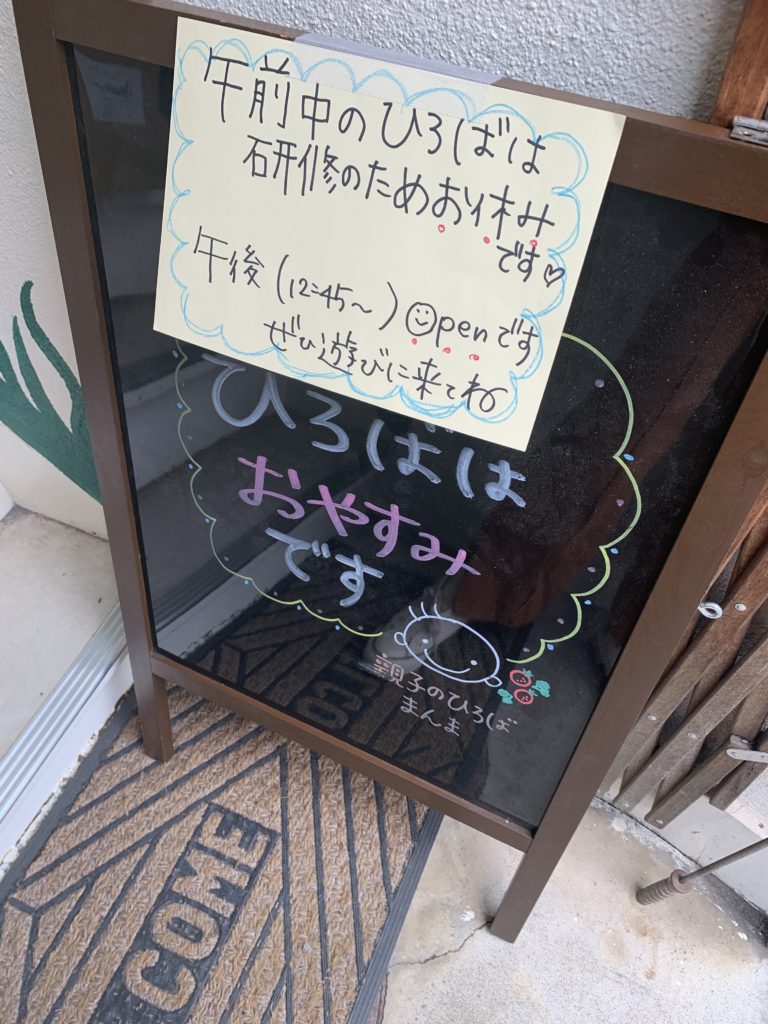 午前中のひろばは
研修のためお休み
です♡
午後(12:45〜)Openです
ぜひ遊びに来てね
ひろばは
おやすみ
です
親子のひろば
まんま
COME